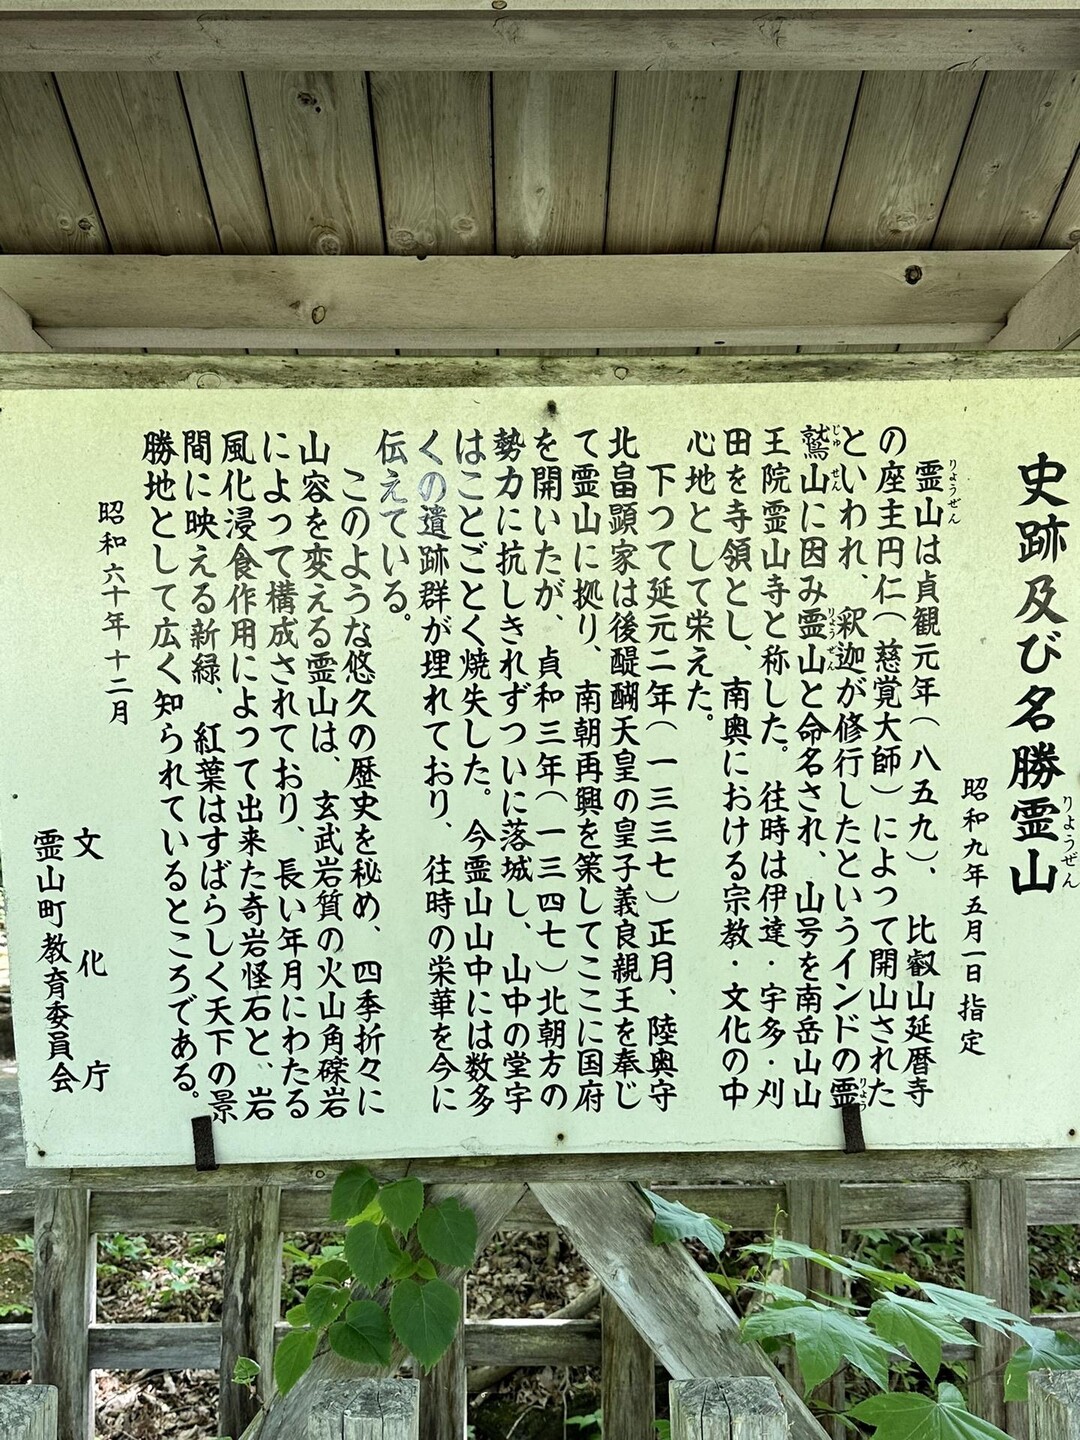 史跡及び名勝霊山
りょうぜん
昭和九年五月一日指定
霊山は貞観元年(八五九)、比叡山延暦寺
りょうぜん
の座主円仁(慈覚大師)によって開山された
といわれ、釈迦が修行したというインドの霊
りょう
鷲山に因み霊山と命名され、山号を南岳山山
じゅせん
りょうぜん
王院霊山寺と称した。往時は伊達・宇多・刈
田を寺領とし、南奥における宗教・文化の中
心地として栄えた。
下つて延元二年(一三三七)正月、陸奥守
北畠顕家は後醍醐天皇の皇子義良親王を奉じ
て霊山に拠り、南朝再興を策してここに国府
を開いたが、貞和三年(一三四七)北朝方の
勢力に抗しきれずついに落城し、山中の堂宇
はことごとく焼失した。今霊山山中には数多
くの遺跡群が埋れており、往時の栄華を今に
伝えている。
このような悠久の歴史を秘め、四季折々に
山容を変える霊山は、玄武岩質の火山角礫岩
によって構成されており、長い年月にわたる
風化浸食作用によって出来た奇岩怪石と、岩
間に映える新緑、紅葉はすばらしく天下の景
勝地として広く知られているところである。
昭和六十年十二月
文化庁
霊山町教育委員会